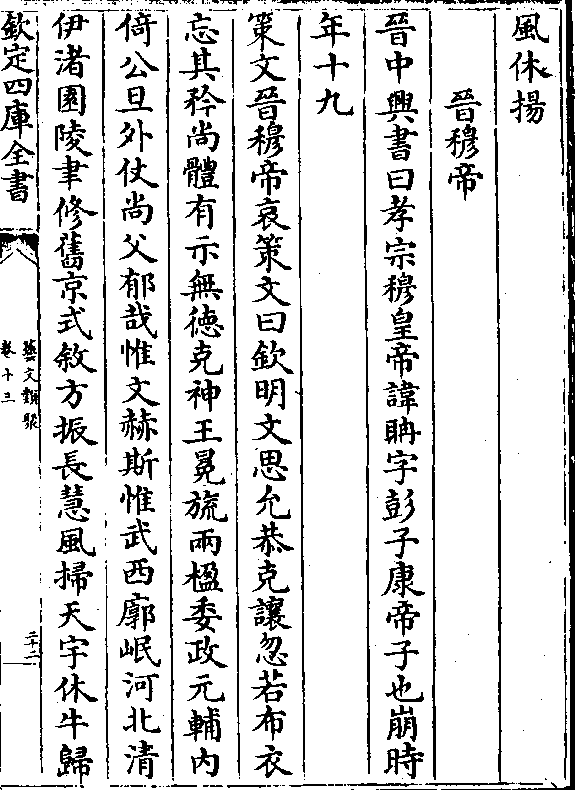 風休揚
晉穆帝
晉中興書曰孝宗穆皇帝諱聃字彭子康帝子也崩時
年十九
策文晉穆帝哀策文曰欽明文思允恭克讓忽若布衣
忘其矜尚體有示無德克神王冕旒兩楹委政元輔内
倚公旦外仗尚父郁哉惟文赫斯惟武西廓岷河北清
伊渚園陵聿修舊京式敘方振長慧風掃天宇休牛歸
欽定四庫全書
藝文類聚
卷十三
三十二